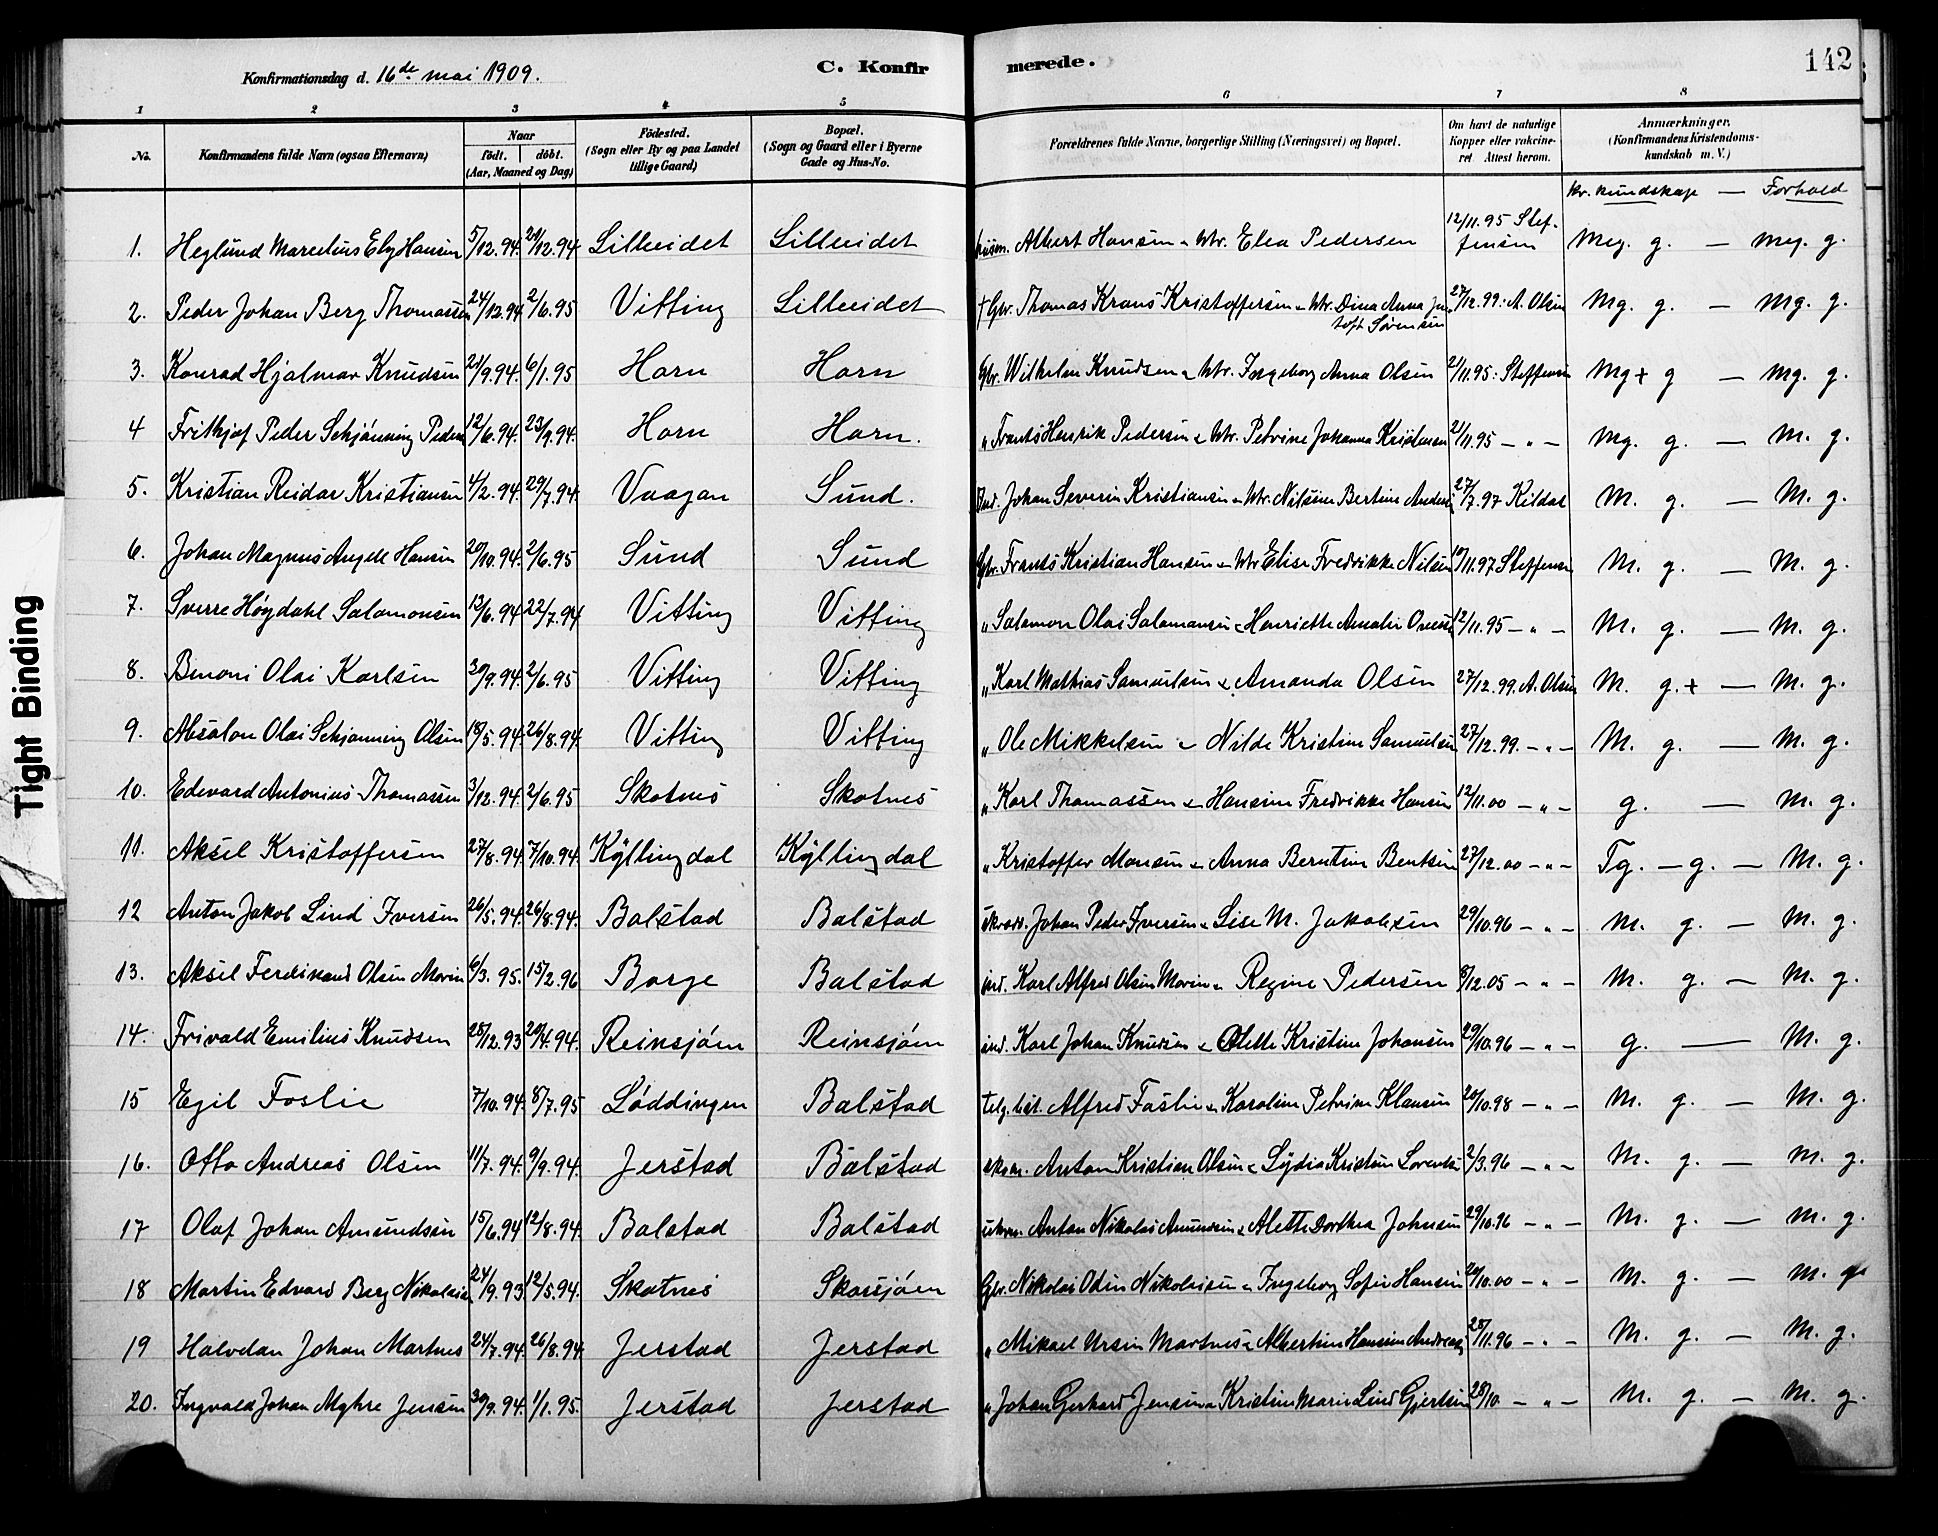 142
Konfirmationsdag d. 16de mai 1909.
C. Konfirmerede.
1 2 3 4 5 6 7 8
No.
Konfirmandens fulde Navn (ogsaa Efternavn)
Naar
födt. döbt.
(Aar, Maaned og Dag)
Födested.
(Sogn eller By og paa Landet
tillige Gaard)
Bopæl.
(Sogn og Gaard eller i Byerne
Gade og Hus-No.
Forældrenes fulde Navne, borgerlige Stilling (Næringsvei) og Bopæl.
Om havt de naturlige
Kopper eller vakcine-
ret Attest herom.
Anmærkninger.
(Konfirmandens Kristendoms-
kundskab m. V.)
kr. kundskap — Forhold
1. Heglund Marelius Hansen 5/12.94. /12.94 Lilleeidet Lilleeidet Albert Hansen Pedersen 12/11.95 Stef- Meg. g. — meg. g.
fensen
2. Peder Johan Berg Thomassen 24/12.94 2/6.95 Vitting Lilleeidet Thomas Krans Kristoffersen Dina Anna Jen- 27/12.99: A. Olsen Mg. g. — Mg. g.
toft Sørensen
3. Konrad Hjalmar Knudsen 21/9.94. 6/1.95 Horn Horn Gbr. Wilhelm Knudsen Ingeborg Anna Olsen 2/11.95: Steffensen Mg+ g — mg. g.
4 Frithjof Peder Schjønning Peders 12/6.94. 23/9.94. Horn Horn. „ Frants Henrik Pedersen Petrine Johanna Kristensen 2/11.95 — „ — Mg. g. — M. g.
5. Kristian Reidar Kristiansen 4/2.94. 29/7.94. Vaagan Sund. Ind. Johan Severin Kristiansen Nilsine Bertine Anders 27/7.97 Kildal M. g. — M. g.
6. Johan Magnus Angell Hansen 20/10.94. 2/6.95 Sund Sund Gbr. Frants Kristian Hansen Elise Fredrikke Nilsen /11.97 Steffensen M. g. — M. g.
7. Sverre Høgdahl Salomonsen 13/6.94 22/7.94 Vitting Vitting „ Salamon Olai Salamonsen Henriette Amalie 12/11.95 — „ — M. g. — M. g.
8. Benoni Olai Karlsen 30/9.94. 2/6.95 Vitting Vitting „ Karl Mathias Samuelsen Amanda Olsen 27/12.99. A. Olsen M. g.+ — M. g.
9. Absalon Olai Schjønning Olsen 18/5.94 26/8.94. Vitting Vitting „ Ole Mikkelsen Nilde Kristine Samuelsen 27/12.99. — „ — M. g. — M. g.
10. Edevard Antonius Thomassen 3/12.94. 2/6.95 Skotnes Skotnes „ Karl Thomassen Hansine Fredrikke Hansen 12/11.00 — „ — g. — M. g.
11. Aksel Kristoffersen 27/8.94. 7/10.94. Kyllingdal Kyllingdal „ Kristoffer Monsen Anna Berntine Bentsen 27/12.00 — „ — Tg. — g. — M. g.
12 Anton Jakob Lind Iversen 26/5.94. 26/8.94. Balstad Balstad Johan Peder Iversen Lise M. Jakobsen 29/10.96 — „ — M. g. — M. g.
13. Aksel Ferdinand Olsen Morin 6/3.95. 15/2.96 Borge Balstad ind. Karl Alfred Olsen Morin Regine Pedersen 8/12.05 — „ — M. g. — M. g.
14. Frivald Emilius Knudsen 28/12.93 29/4.94. Reinsjøen Reinsjøen ind. Karl Johan Knudsen Olette Kristine Johansen 29/10.96 — „ — g. — M. g.
15 Egil Foslie 7/10.94. 8/7.95 Løddingen Balstad telg. Alfred Foslie Karoline Petrine Klausen 20/10.98 — „ — M. g. — M. g.
16. Otto Andreas Olsen 11/7.94. 9/9.94. Jerstad Balstad Anton Kristian Olsen Lydia Kristine Lorents 2/3.96 — „ — M. g. — M. g.
17 Olaf Johan Amundsen 15/6.94 12/8.94. Balstad Balstad Anton Nikolai Amundsen Alette Dorthea Johnsen 29/10.96 — „ — M. g. — M. g.
18 Martin Edvard Berg Nikolaisen 24/9.93. 12/5.94. Skotnes Skarsjøen Gbr. Nikolai Odin Nikolaisen Ingeborg Sofie Hansen 20/10.00 — „ — M. g. — M. g.
19 Halvdan Johan Martnes 24/7.94. 26/8.94 Jerstad Jerstad „ Mikael Ursin Martnes Albertine Hansine Andreas 28/11.96 — „ — M. g. — M. g.
20. Ingvald Johan Myhre Jensen 30/9.94. 1/1.95. Jerstad Jerstad „ Johan Gerhard Jensen Kristine Marie Lind Gjertsen 28/10. — „ — M. g. — M. g.
Tight Binding